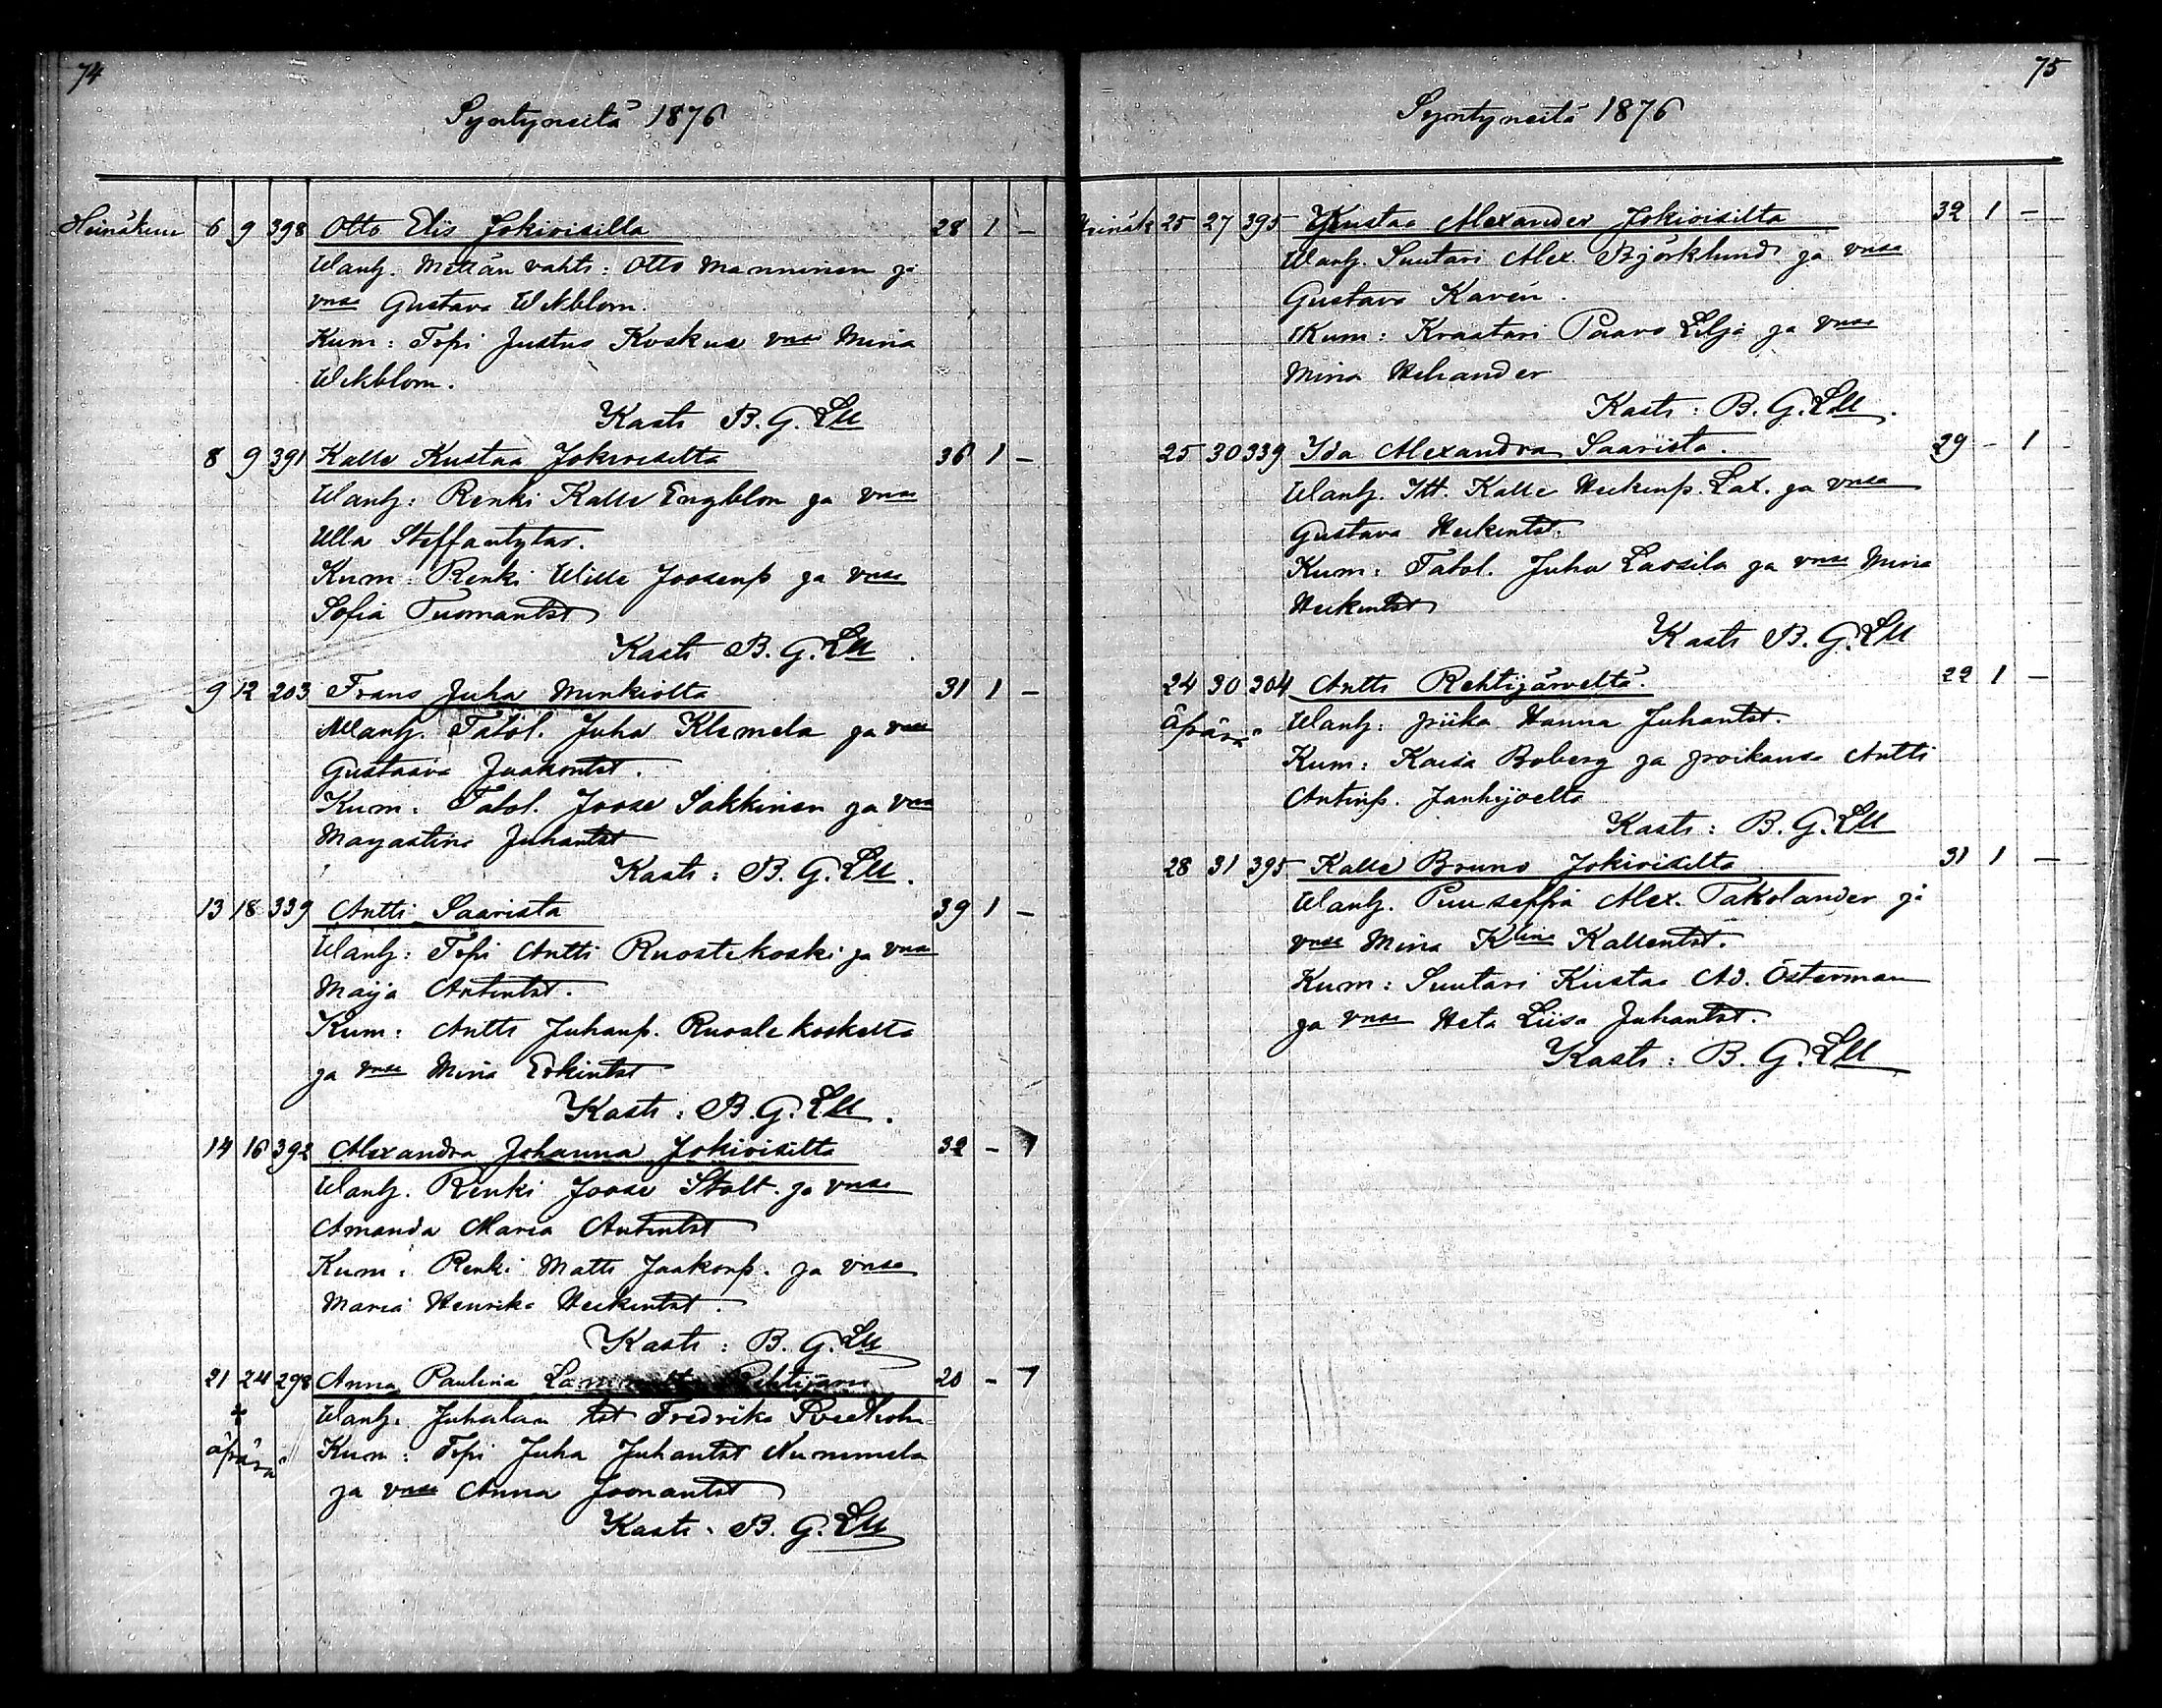 74
Syntyneitä 1876
Heinäkuu 6 9 398 Otto Elis Jokioisilta 28 1 -
Wanh. Mettän vahti: Otto Manninen ja
vmsa Gustava Wikblom.
Kum: Topi Justus Koskus vmsa Mina
Wikblom.
Kasti B. G. LM
8 9 391 Kalle Kustaa Jokioisilta 36 1 -
Wanh: Renki Kalle Engblom ja vmsa
Ulla Steffantytär.
Kum: Renki Wille Joosenp. ja vmsa
Sofia Tuomantst
Kasti B. G. LM
9 12 203 Frans Juha Minkiöltä 31 1 -
Wanh. Talol. Juha Klemela ja vmsa
Gustaava Jaakontst.
Kum: Talol. Joose Sakkinen ja vmsa
Mayastina Juhantst
Kasti: B. G. LM.
13 18 339 Antti Saarista 39 1 -
Wanh: Topi Antti Ruostekoski ja vmsa
Maija Antintst.
Kum: Antti Juhanp. Ruostekoskelta
ja vmsa Mina Erkintst
Kasti: B. G. LM.
14 16 392 Alexandra Johanna Jokioisilta 32 - 1
Wanh. Renki Joose Stolt. ja vmsa
Amanda Maria Antintst
Kum: Renki Matti Jaakonp. ja vmsa
Maria Henrika Heikintst.
Kasti: B. G. LM
21 24 298 Anna Paulina Rehtijärvi 20 - 1
† Wanh: tst Fredrika
äpärä Kum: Topi Juha Juhantst Nummela
ja vmsa Anna Joonantst
Kasti: B. G. LM
75
Syntyneitä 1876
Heinäk 25 27 395 Kustaa Alexander Jokioisilta 32 1 -
Wanh. Suutari Alex. Björklund ja vmsa
Gustava Kavén.
Kum: Kraatari Paavo Lilja ja vmsa
Mina Helander
Kasti: B. G. LM.
25 30 339 Ida Alexandra Saarista. 29 - 1
Wanh. Itt. Kalle Heikinp. Lax. ja vmsa
Gustava Heikintst.
Kum: Talol. Juha Lassila ja vmsa Mina
Heikintst
Kasti B. G. LM
24 30 304 Antti Rehtijärveltä. 22 1 -
äpärä Wanh: piika Hanna Juhantst.
Kum: Kaisa Boberg ja poikansa Antti
Antinp. Janhijoelta
Kasti: B. G. LM
28 31 395 Kalle Bruno Jokioisilta 31 1 -
Wanh. Puuseppä Alex. Takolander ja
vmsa Mina Klina Kallentst.
Kum: Suutari Kustaa Ad. Österman
ja vmsa Heta Liisa Juhantst.
Kasti: B. G. LM